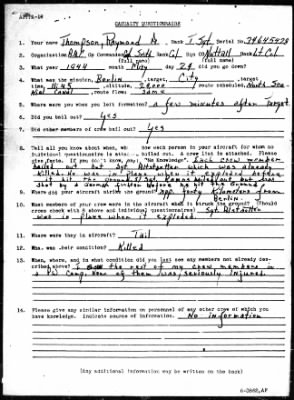 CASUALTY QUESTIONNAIRE
1. Your name Thompson, Raymond Rank T/Sgt. Serial No.
2. Organization Gp Commander Sqn
(full name) (full name)
3. What year 1944 month May day 24 did you go down?
4. What was the mission, Berlin, target, City, target
time, altitude, route scheduled,
route flown same
5. Where were you when you left formation? a few minutes after target
6. Did you bail out? yes
7. Did other members of crew bail out? Yes
8. Tell all you know about when, where, how each person in your aircraft for whom no
individual questionnaire is attached bailed out. A crew list is attached. Please
give facts. If you don't know, say: "No Knowledge". Each crew member
bailed out but Sgt. which was already
killed. He was in plane when it exploded before
it hit the ground. bailed out but was
shot by a German civilian before he hit the ground
9. Where did your aircraft strike the ground? app. forty kilometers from
Berlin.
10. What members of your crew were in the aircraft when it struck the ground? (Should
cross check with 8 above and individual questionnaires) Sgt.
was in plane when it exploded
11. Where were they in aircraft? Tail
12. What was their condition? Killed
13. When, where, and in what condition did you last see any members not already des-
cribed above? I the rest of my crew members in
a PW Camp. None of them was seriously injured.
14. Please give any similar information on personnel of any other crew of which you
have knowledge. Indicate source of information. No information
(Any additional information may be written on the back)
6-3682,AF